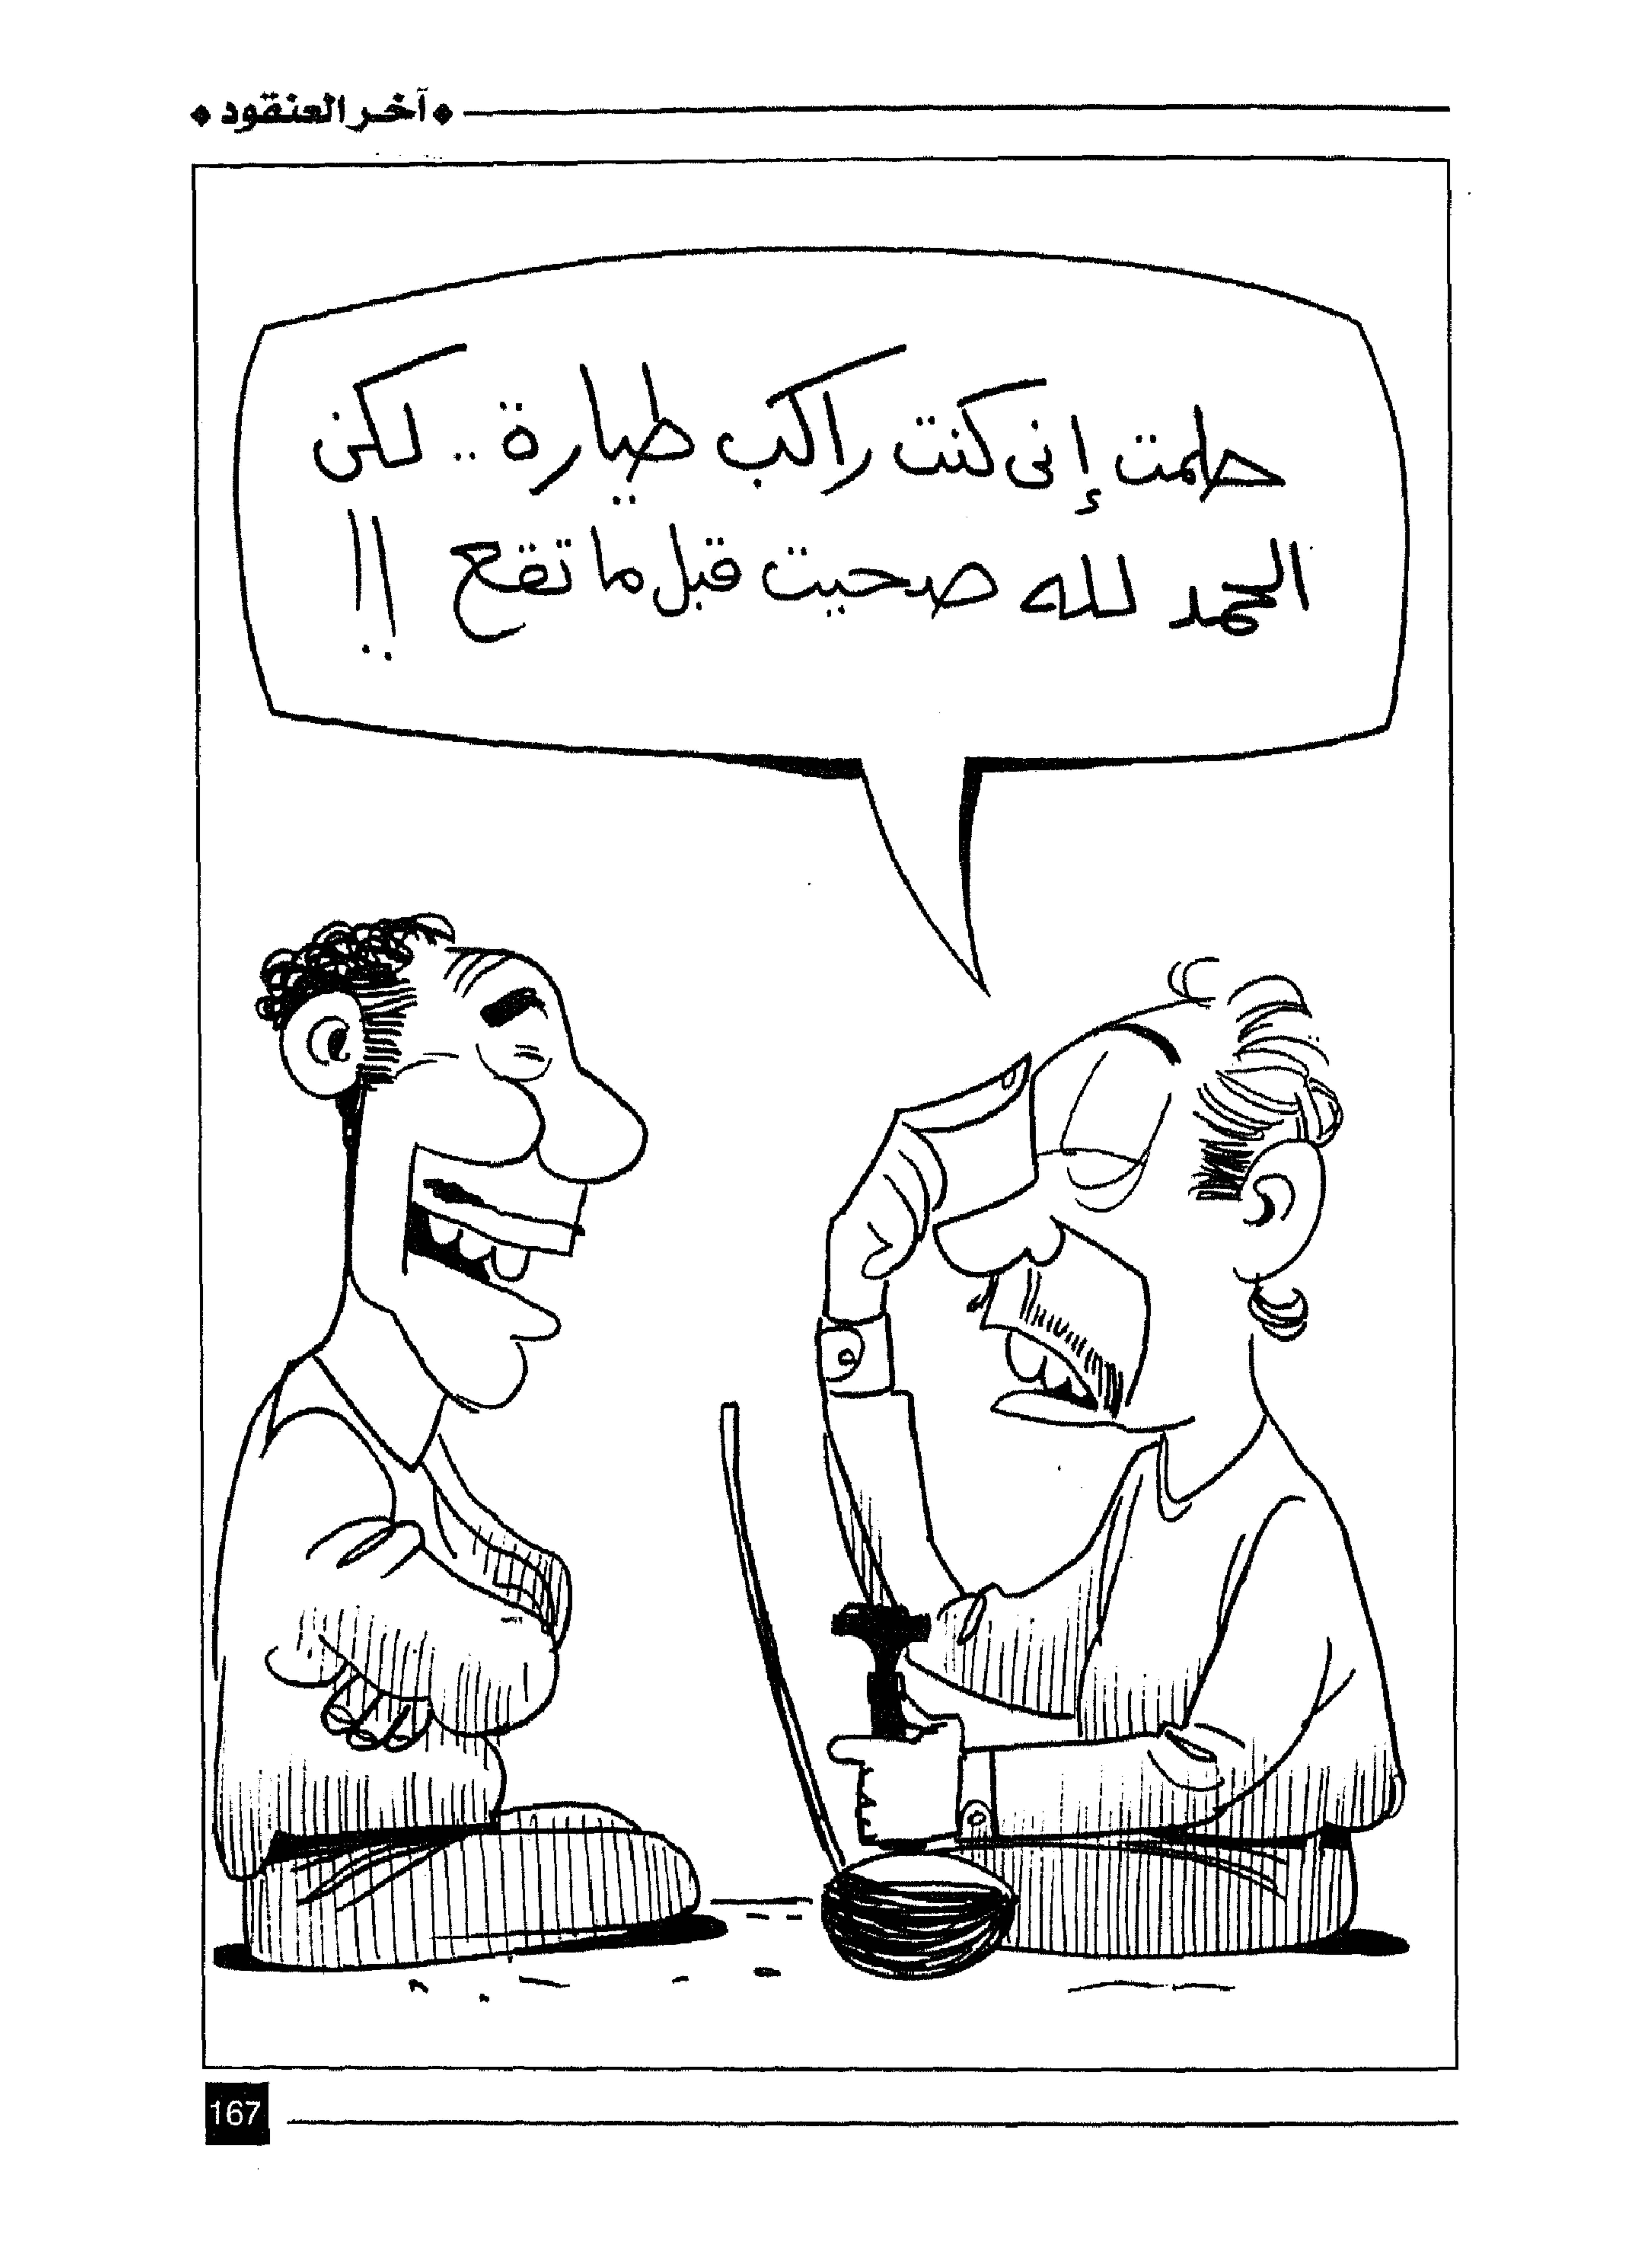 آخر العنقود
حلمت إنى كنت راكب طيارة .. لكن
الحمد لله صحيت قبل ما تقع !!
167